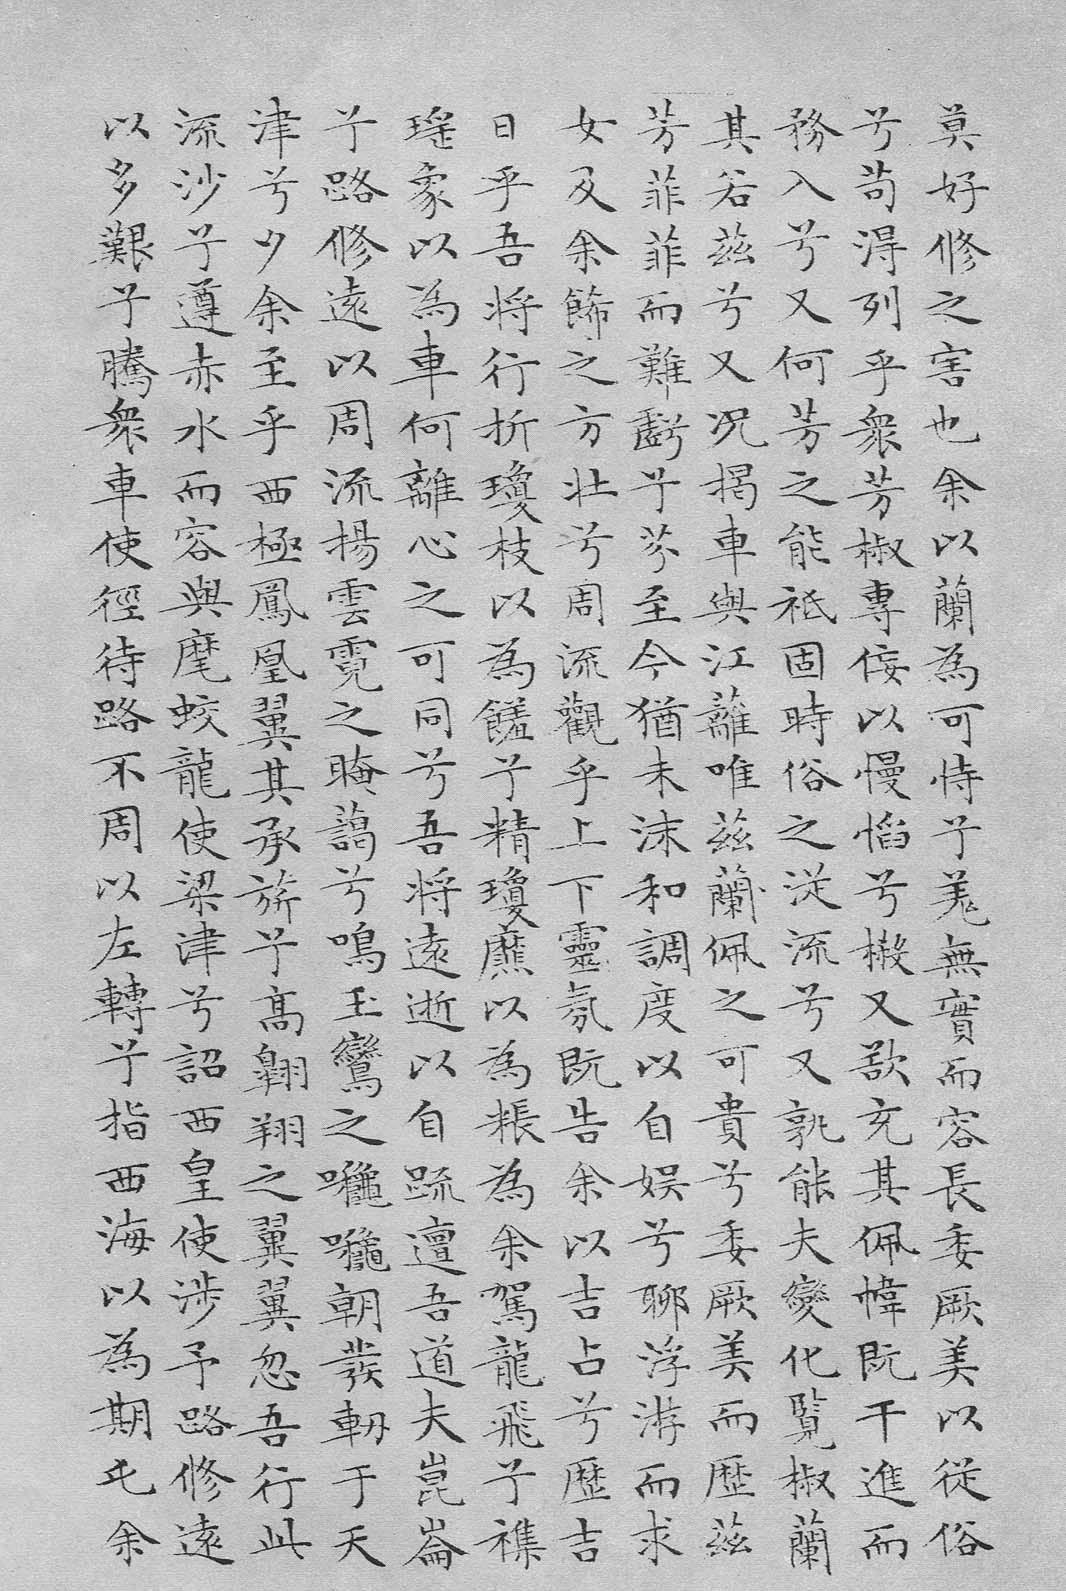 莫好修之害也余以蘭為可恃兮羌無實而容長委厥美以從俗
兮苟得列乎衆芳椒專佞以慢慆兮樧又欲充其佩幃既干進而
務入兮又何芳之能祗固時俗之從流兮又孰能夫變化覧椒蘭
其若茲兮又况揭車與江蘺唯茲蘭佩之可貴兮委厥美而歴茲
芳菲菲而難虧兮芬至今猶未沫和調度以自娱兮聊浮游而求
女及余餙之方壮兮周流觀乎上下靈氛既告余以吉占兮歴吉
日乎吾将行折瓊枝以為饈兮精瓊爢以為粻為余駕龍飛兮襍
瑤象以為車何離心之可同兮吾将遠逝以自疏邅吾道夫崑崙
兮路修遠以周流揚雲霓之晻藹兮鳴玉鸞之嚨嚨朝發軔于天
津兮夕余至乎西極鳳凰翼其承旂兮高翱翔之翼翼忽吾行此
流沙兮遵赤水而容與麾蛟龍使梁津兮詔西皇使涉予路修遠
以多艱兮騰衆車使徑待路不周以左轉兮指西海以為期屯余